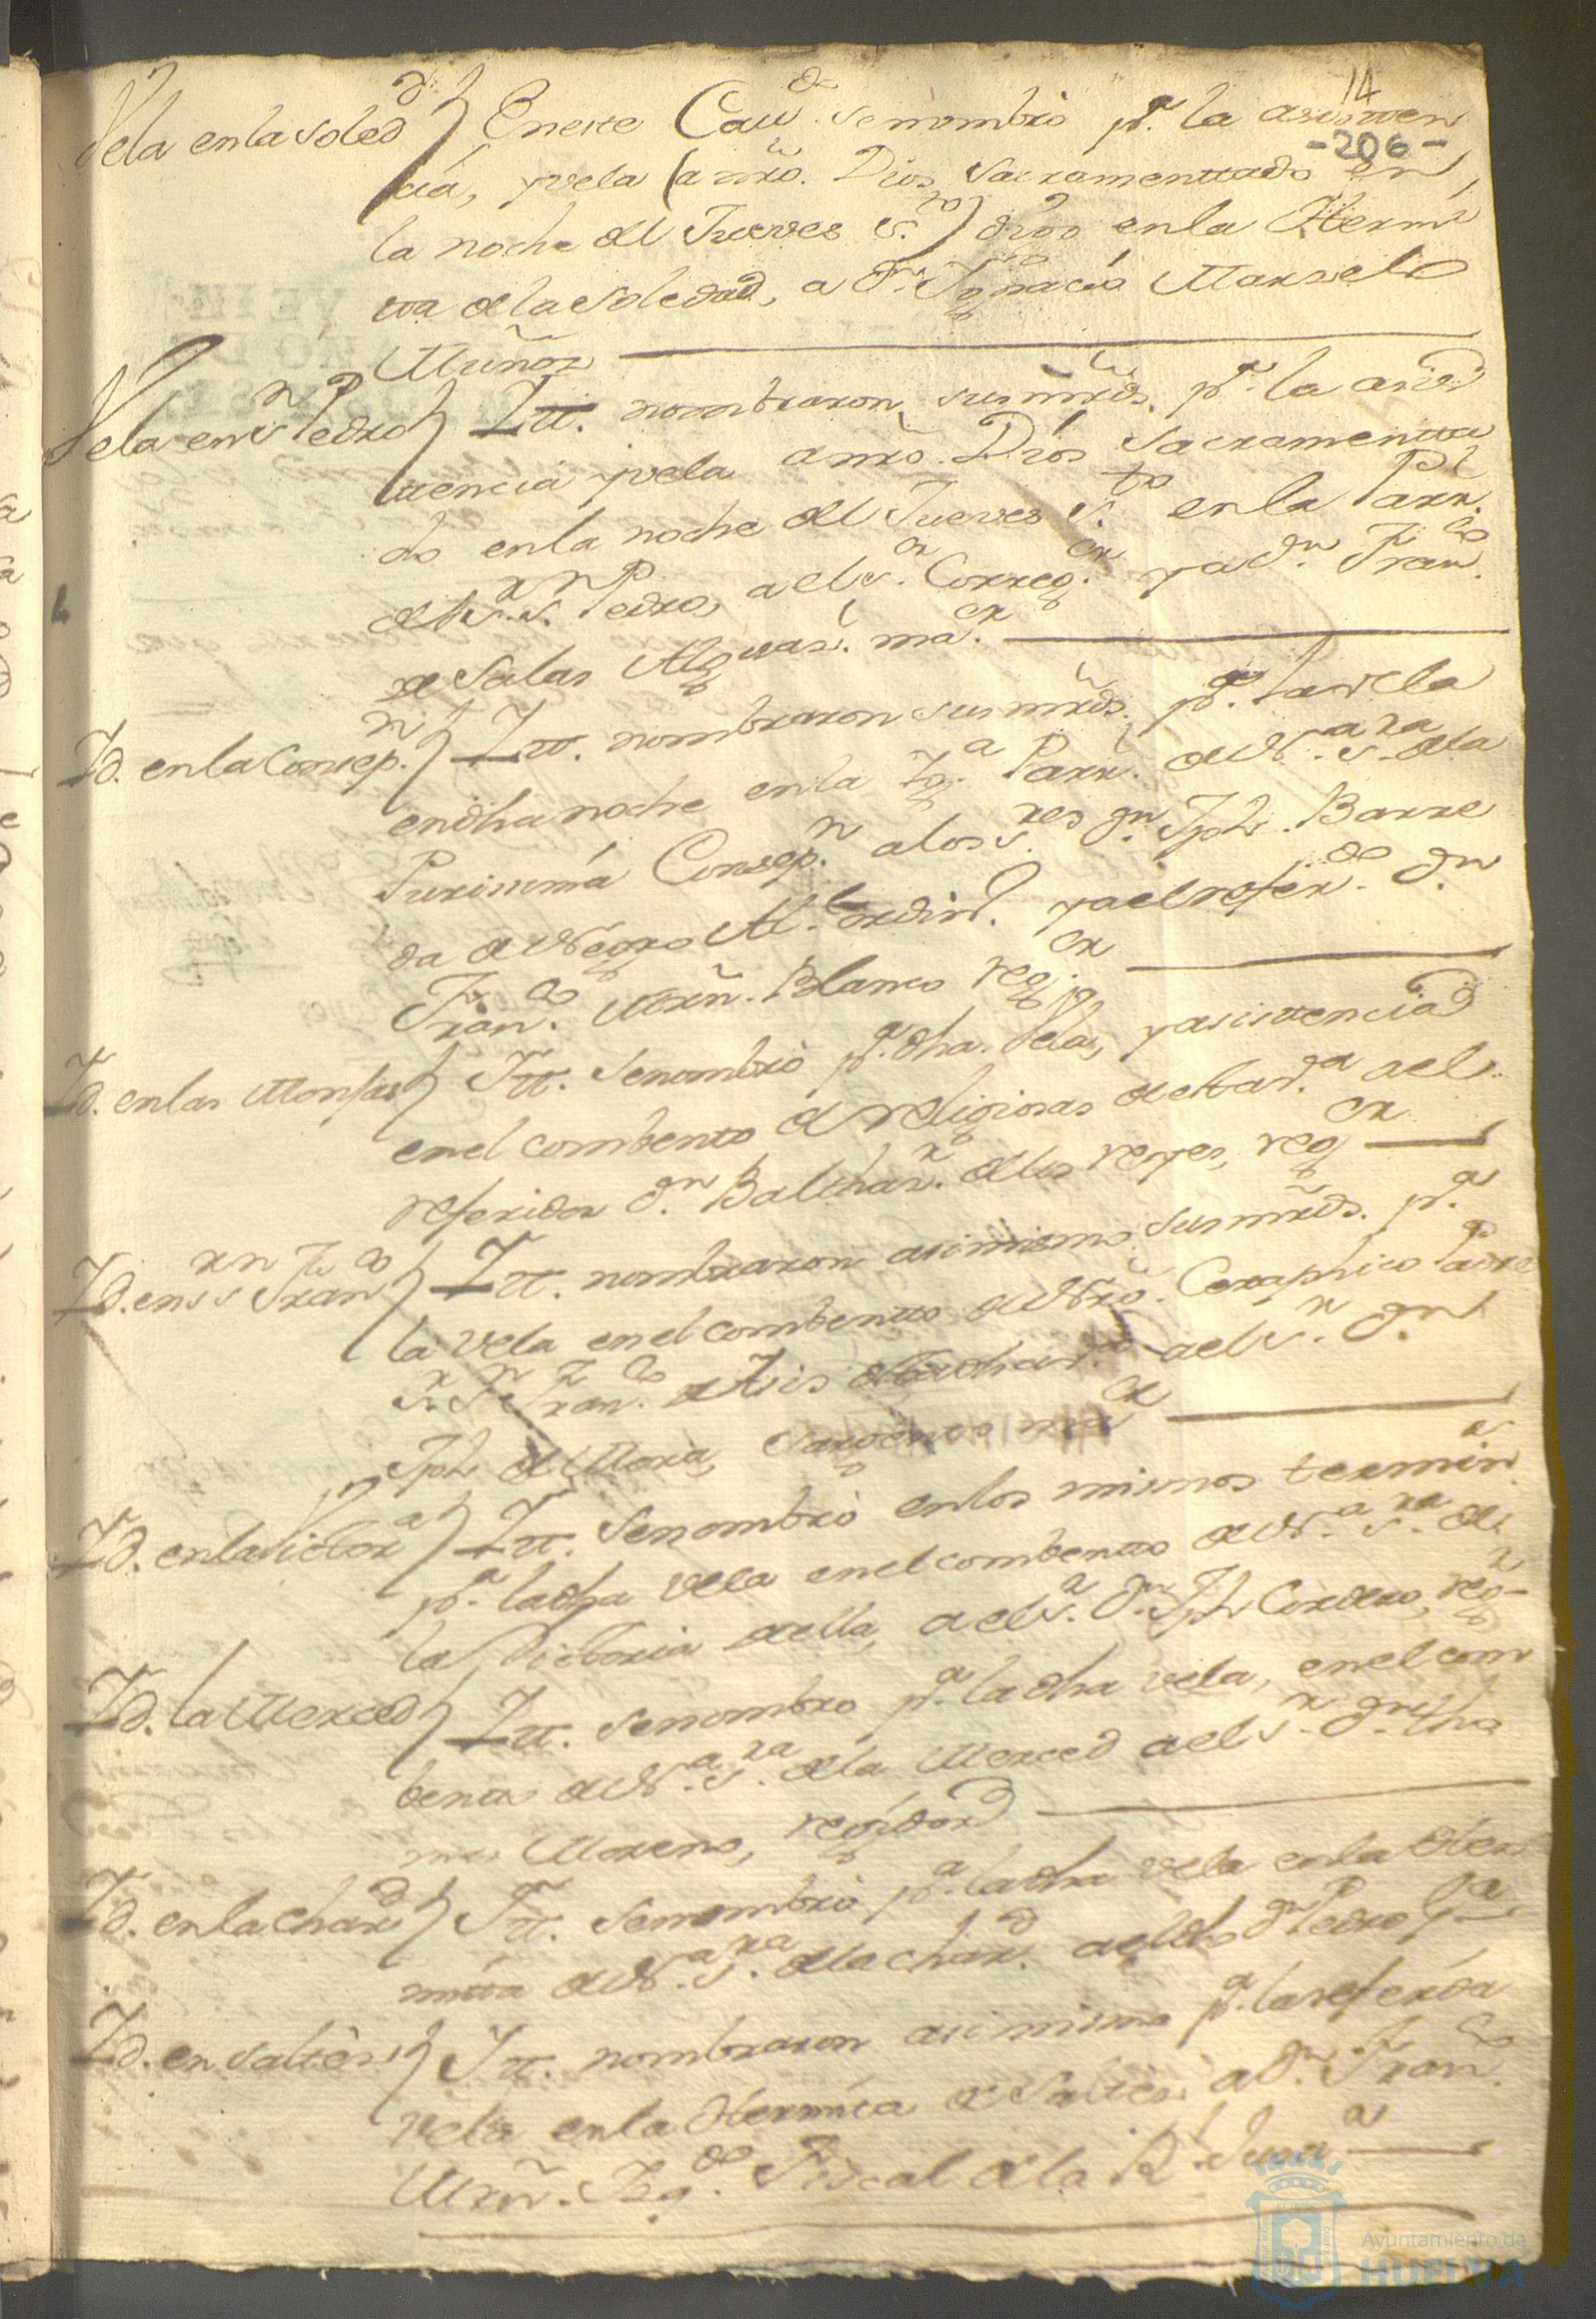 14
-206-
Vela en la Soled.d } En este Cav.do se nombró p.a la asisten
cia, y vela (a nro. Dios Sacramentado en
la noche del Jueves S.to) dijo en la Hermi
ta de la Soledad, a d.n Ignacio Manuel
Muñoz
Vela en S.n Pedro } Itt. nombraron sus mrds. p.a la asis
tencia y vela a nro. Dios Sacramenta
do en la noche del Jueves S.to en la Parr.l
del S.r S.n Pedro, a el S.r Correg.or y a d.n Fran.co
de Salas Alguas.l ma.or
Id. en la Concep.n } Itt. nombraron sus mrds. p.a la vela
en dha noche en la Ig.a Parr. de N.a S.ra de la
Purissima Concep.n a los S.res d.n Jph. Barre
da de Negro Al.e ordin.o y a el refer.do d.n
Fran.co Mrn. Blanco reg.or
Id. en las Monjas } Itt. se nombró p.a dha. Vela, y asistencia
en el combento de religiosas de esta v.a a el
referidor d.n Balthar.r de los reyes, reg.or
Id. en S.r S.n Fran.co } Itt. nombraron asimismo sus mrds. p.a
la vela en el combento de Nro. Ceraphico Padre
S.r S.n Fran.co de Asis de dha v.a a el S.r d.n
Jph de Mora, Sargento ma.or
Id. en la Victor.a } Itt. se nombró en los mismos termin.s
p.a la dha vela en el combento de N.a S.ra de
la Victoria de ella, a el S.r d.n Jph Cordero, reg.r
Id. la Merced } Itt. se nombro p.a la dha vela, en el com
bento de N.a S.ra de la Merced a el S.r d.n Tho
mas Moreno, regidor
Id. en la Charid.d } Itt. se nombró p.a la dha vela en la Her
mita de N.a S.ra de la Char.d a el dho d.n Pedro
Id. en Saltés } Itt. nombraron asimismo p.a la referida
vela en la Hermita de Saltes a d.n Fran.co
Mrn. Izq.do Fiscal de la R.l Justi.a
Ayuntamiento de
HUELVA